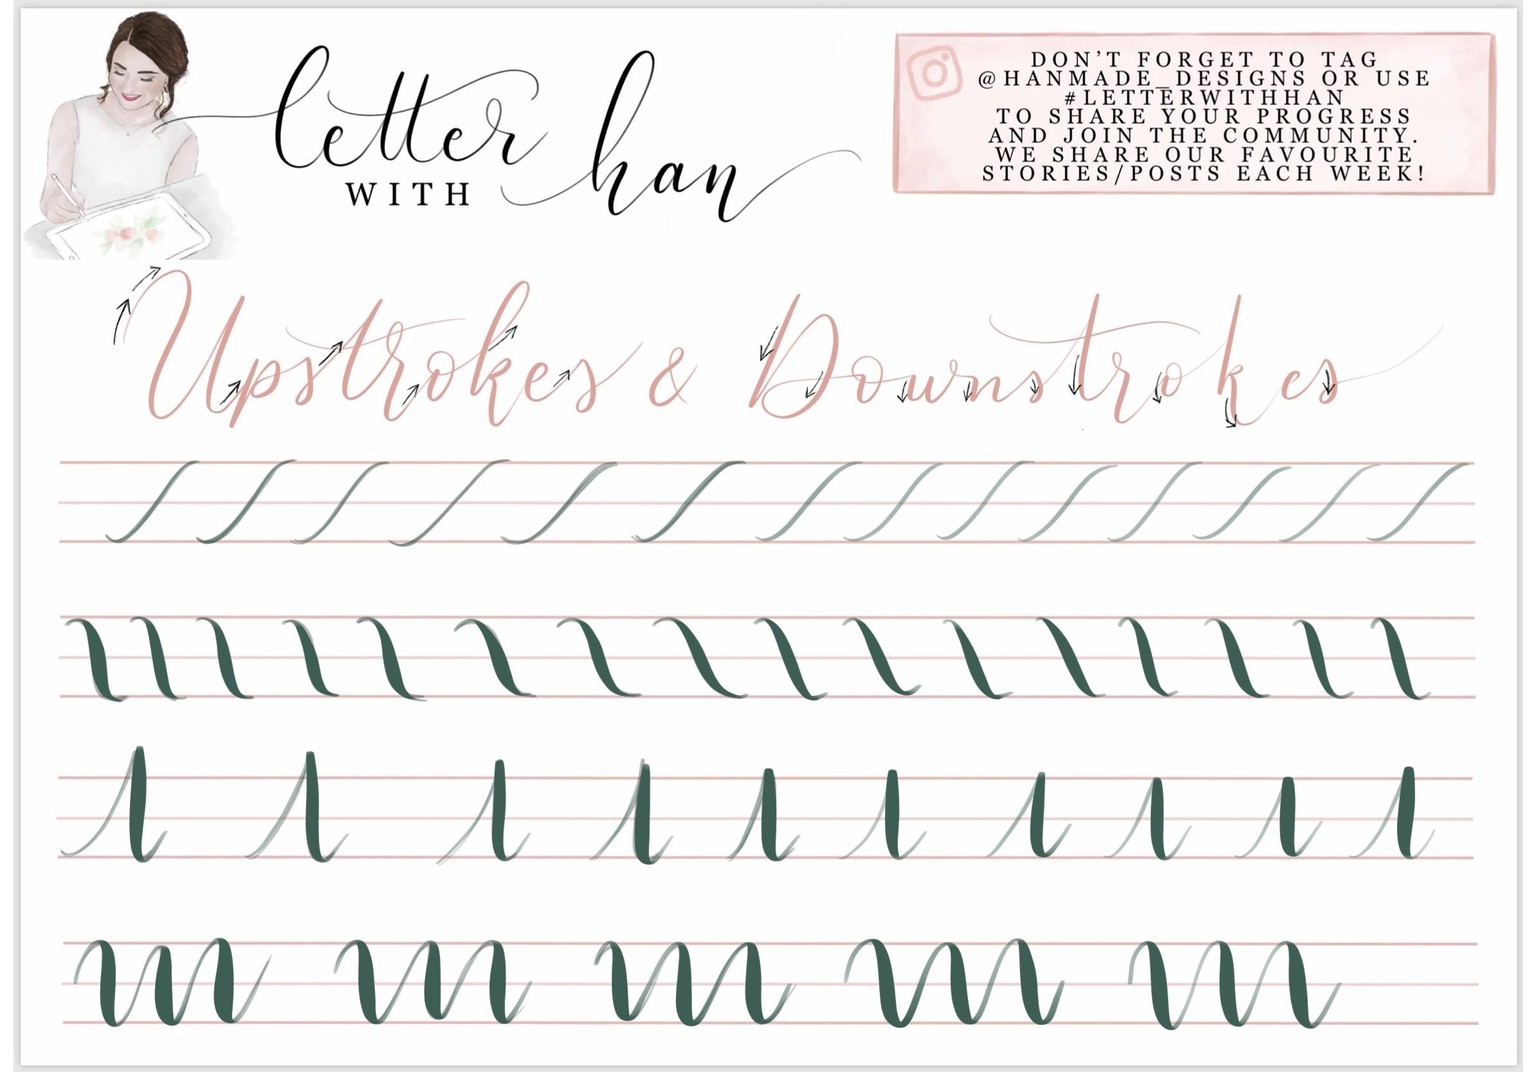 letter
WITH han
DON'T FORGET TO TAG
@HANMADE_DESIGNS OR USE
#LETTERWITHHAN
TO SHARE YOUR PROGRESS
AND JOIN THE COMMUNITY.
WE SHARE OUR FAVOURITE
STORIES/POSTS EACH WEEK!
Upstrokes & Downstrokes